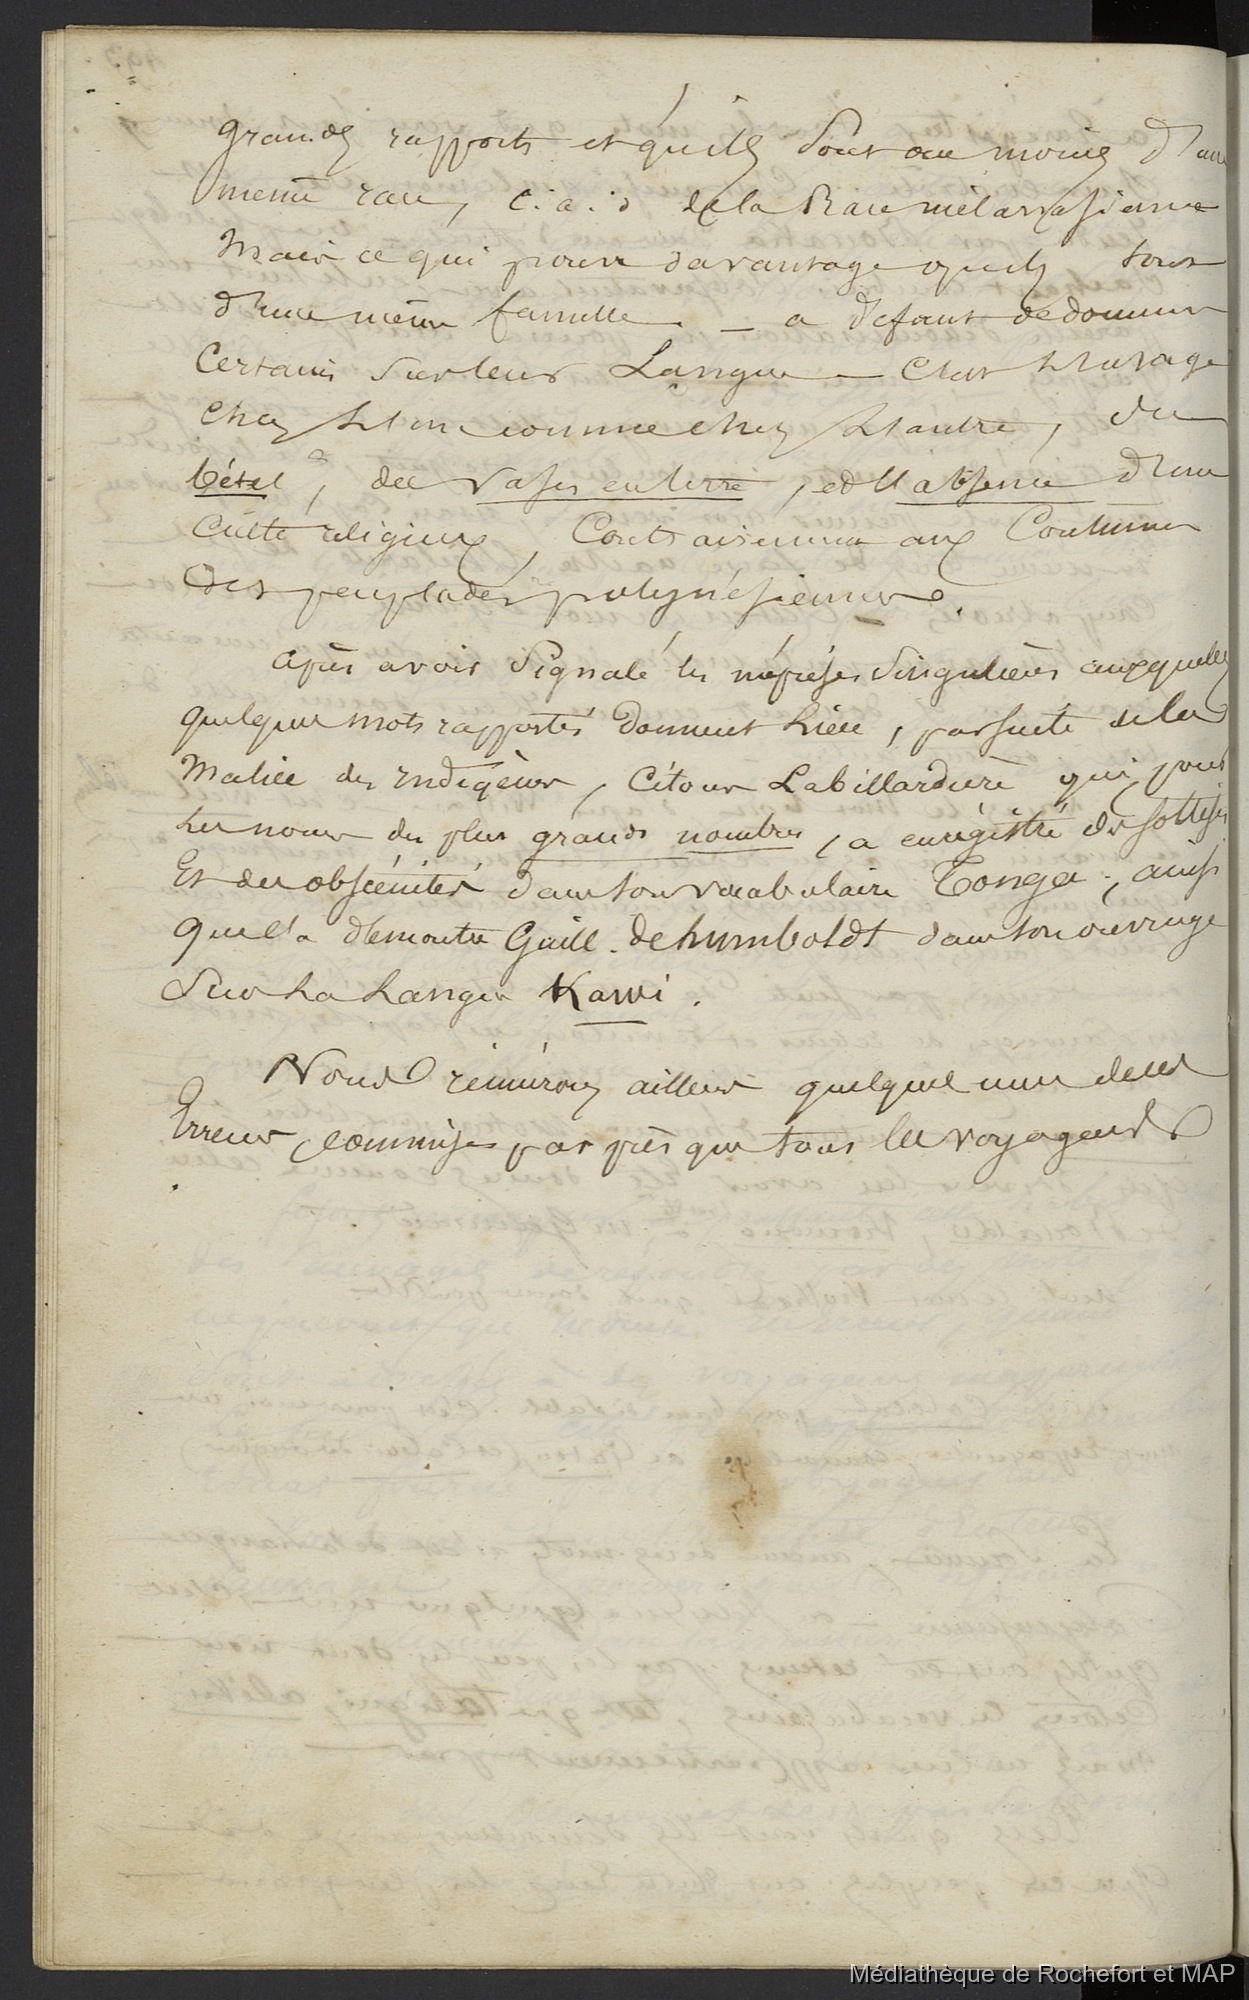 grands rapports et qu'ils sont au moins d'une
même race, c.a.d de la Race mélanésienne
Mais ce qui prouve davantage qu'ils sont
d'une même famille — a défaut de données
Certaines sur leur Langue — C'est l'usage
chez l'un comme chez l'autre, du
bétel, des vases en terre, et l'absence d'un
Culte religieux, Contrairement aux Coutumes
des peuplades polynésiennes.
après avoir signalé les méprises singulières auxquelles
quelques mots rapportés donnent lieu, par suite de la
Malice des indigènes, Citons Labillardière qui, pour
les noms des plus grands nombres, a enrégistré des sottises
Et des obscénités dans son vocabulaire Tonga, ainsi
que l'a démontré Guill. de humboldt dans son ouvrage
Sur La Langue Kawi.
Nous réunirons ailleurs quelques unes de ces
Erreurs, commises par presque tous les voyageurs
.
Médiathèque de Rochefort et MAP